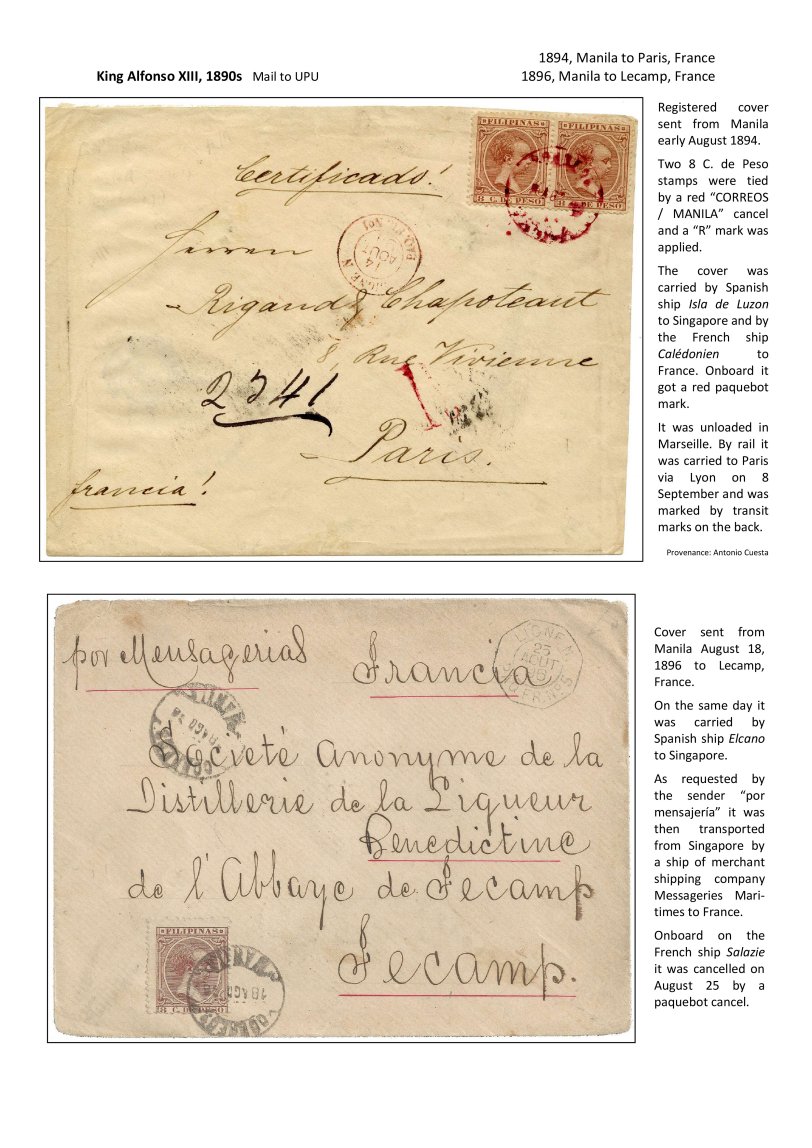 1894, Manila to Paris, France
King Alfonso XIII, 1890s Mail to UPU
1896, Manila to Lecamp, France
FILIPINAS
8 C. DE PESO
FILIPINAS
8 C. DE PESO
Certificado!
14
AOUT
Herren
Rigaud & Chapoteaut
8, Rue Vivienne
Paris.
francia!
Registered cover
sent from Manila
early August 1894.
Two 8 C. de Peso
stamps were tied
by a red “CORREOS
/ MANILA” cancel
and a “R” mark was
applied.
The cover was
carried by Spanish
ship Isla de Luzon
to Singapore and by
the French ship
Calédonien to
France. Onboard it
got a red paquebot
mark.
It was unloaded in
Marseille. By rail it
was carried to Paris
via Lyon on 8
September and was
marked by transit
marks on the back.
Provenance: Antonio Cuesta
por Mensagerias
Francia
LIGNE N
25
AOUT
96
Societé Anonyme de la
Distillerie de la Liqueur
Benedictine
de l'Abbaye de Fecamp
Fecamp.
FILIPINAS
8 C. DE PESO
18 AGO
Cover sent from
Manila August 18,
1896 to Lecamp,
France.
On the same day it
was carried by
Spanish ship Elcano
to Singapore.
As requested by
the sender “por
mensajería” it was
then transported
from Singapore by
a ship of merchant
shipping company
Messageries Mari-
times to France.
Onboard on the
French ship Salazie
it was cancelled on
August 25 by a
paquebot cancel.